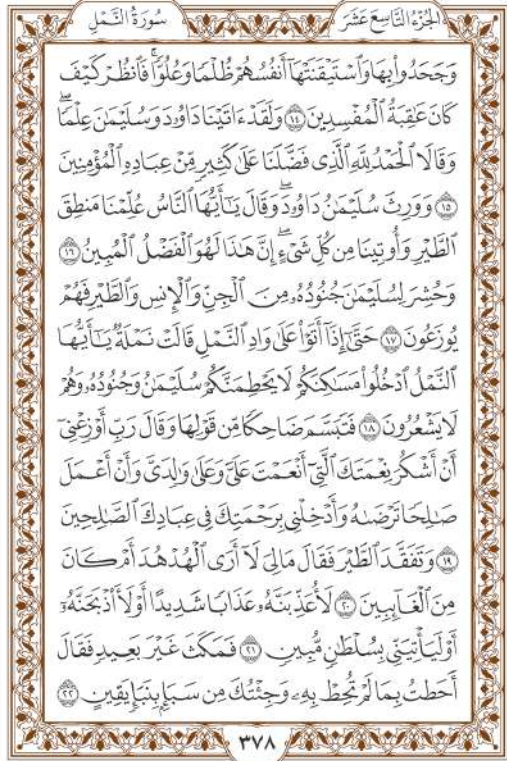 الجُزْءُ التَّاسِعَ عَشَرَ سُورَةُ النَّمْلِ
وَجَحَدُوا۟ بِهَا وَٱسْتَيْقَنَتْهَآ أَنفُسُهُمْ ظُلْمًا وَعُلُوًّا ۚ فَٱنظُرْ كَيْفَ
كَانَ عَٰقِبَةُ ٱلْمُفْسِدِينَ ١٤ وَلَقَدْ ءَاتَيْنَا دَاوُۥدَ وَسُلَيْمَٰنَ عِلْمًا ۖ
وَقَالَا ٱلْحَمْدُ لِلَّهِ ٱلَّذِى فَضَّلَنَا عَلَىٰ كَثِيرٍ مِّنْ عِبَادِهِ ٱلْمُؤْمِنِينَ
١٥ وَوَرِثَ سُلَيْمَٰنُ دَاوُۥدَ ۖ وَقَالَ يَٰٓأَيُّهَا ٱلنَّاسُ عُلِّمْنَا مَنطِقَ
ٱلطَّيْرِ وَأُوتِينَا مِن كُلِّ شَىْءٍ ۖ إِنَّ هَٰذَا لَهُوَ ٱلْفَضْلُ ٱلْمُبِينُ ١٦
وَحُشِرَ لِسُلَيْمَٰنَ جُنُودُهُۥ مِنَ ٱلْجِنِّ وَٱلْإِنسِ وَٱلطَّيْرِ فَهُمْ
يُوزَعُونَ ١٧ حَتَّىٰٓ إِذَآ أَتَوْا۟ عَلَىٰ وَادِ ٱلنَّمْلِ قَالَتْ نَمْلَةٌ يَٰٓأَيُّهَا
ٱلنَّمْلُ ٱدْخُلُوا۟ مَسَٰكِنَكُمْ لَا يَحْطِمَنَّكُمْ سُلَيْمَٰنُ وَجُنُودُهُۥ وَهُمْ
لَا يَشْعُرُونَ ١٨ فَتَبَسَّمَ ضَاحِكًا مِّن قَوْلِهَا وَقَالَ رَبِّ أَوْزِعْنِىٓ
أَنْ أَشْكُرَ نِعْمَتَكَ ٱلَّتِىٓ أَنْعَمْتَ عَلَىَّ وَعَلَىٰ وَٰلِدَىَّ وَأَنْ أَعْمَلَ
صَٰلِحًا تَرْضَىٰهُ وَأَدْخِلْنِى بِرَحْمَتِكَ فِى عِبَادِكَ ٱلصَّٰلِحِينَ
١٩ وَتَفَقَّدَ ٱلطَّيْرَ فَقَالَ مَالِىَ لَآ أَرَى ٱلْهُدْهُدَ أَمْ كَانَ
مِنَ ٱلْغَآئِبِينَ ٢٠ لَأُعَذِّبَنَّهُۥ عَذَابًا شَدِيدًا أَوْ لَأَا۟ذْبَحَنَّهُۥٓ
أَوْ لَيَأْتِيَنِّى بِسُلْطَٰنٍ مُّبِينٍ ٢١ فَمَكَثَ غَيْرَ بَعِيدٍ فَقَالَ
أَحَطتُ بِمَا لَمْ تُحِطْ بِهِۦ وَجِئْتُكَ مِن سَبَإٍۭ بِنَبَإٍ يَقِينٍ ٢٢
٣٧٨